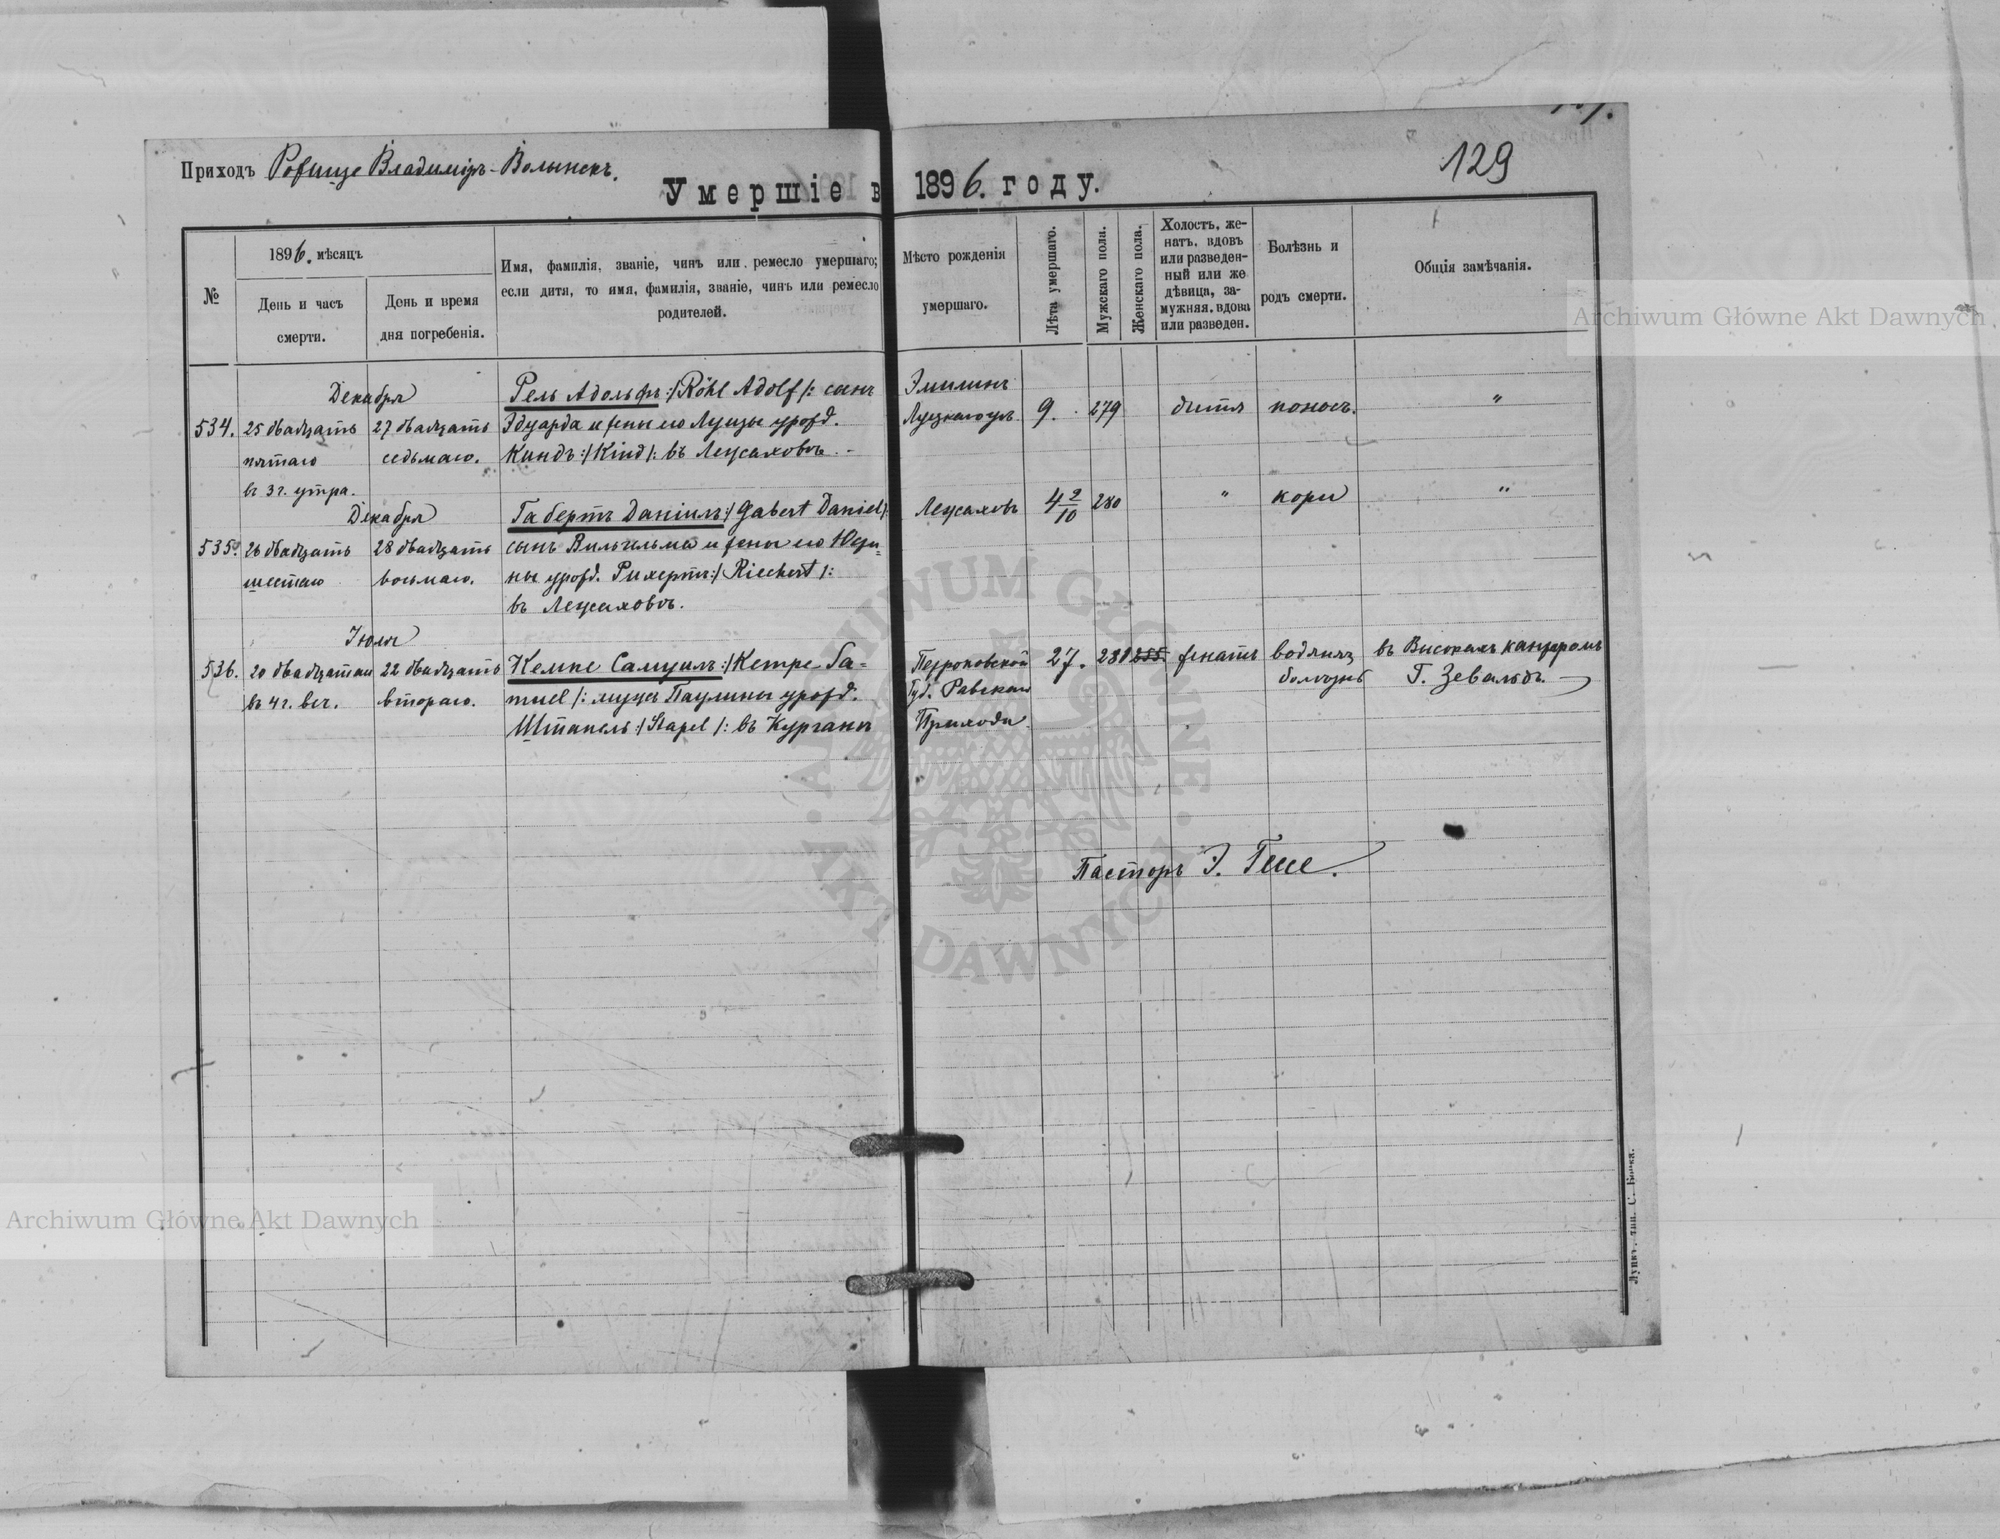 129
Приходъ Рожище Владиміръ-Волынскъ.
Умершіе в 1896. году.
№
1896. мѣсяцъ
День и часъ
смерти.
День и время
дня погребенія.
Имя, фамилія, званіе, чинъ или ремесло умершаго;
если дитя, то имя, фамилія, званіе, чинъ или ремесло
родителей.
Мѣсто рожденія
умершаго.
Лѣта умершаго.
Мужскаго пола.
Женскаго пола.
Холостъ, же-
натъ, вдовъ
или разведен-
ный или же
дѣвица, за-
мужняя, вдова
или разведен.
Болѣзнь и
родъ смерти.
Общія замѣчанія.
Archiwum Główne Akt Dawnych
Декабря
534.
25 двадцать
пятаго
въ 3 г. утра.
27 двадцать
седьмаго.
Рель Адольфъ :/ Röhl Adolf /: сынъ
Эдуарда и жены его Луизы урожд.
Киндъ :/ Kind /: въ
Эмилинъ
Луцкаго у.
9.
279
дитя
поносъ.
"
Декабря
535.
26 двадцать
шестаго
28 двадцать
восьмаго.
Габертъ Даніилъ :/ Gabert Daniel /:
сынъ Вильгельма и жены его Юли=
ны урожд. Рихертъ :/ Riechert /:
въ
4 2/10
280
"
кори
"
Іюля
536.
20 двадцатаго
въ 4 г. веч.
22 двадцать
втораго.
Кемпе Самуилъ :/ Kempe Sa=
muel /: мужъ Паулины урожд.
Штапель :/ Stapel /: въ Курганы
Петроковской
Губ. Равскаго
Прихода.
27.
281
255.
женатъ
водяная
болѣзнь
въ Высокомъ канторомъ
Г. Зевальдъ.
Пасторъ Э. Гессе.
ARCHIWUM GŁÓWNE · AKT DAWNYCH ·
Archiwum Główne Akt Dawnych